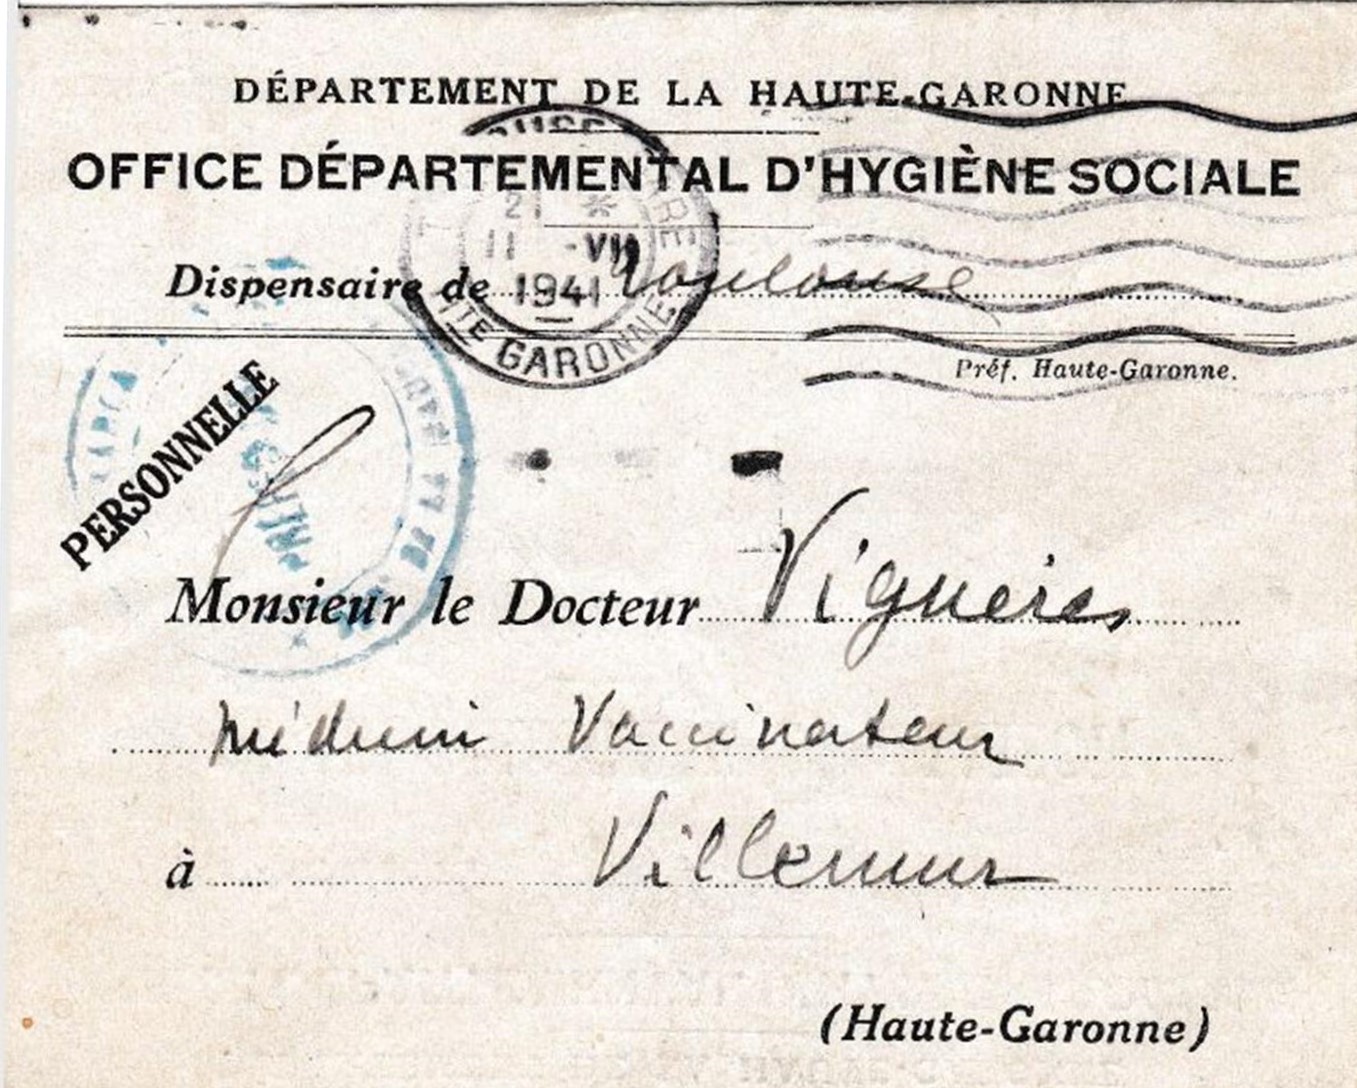 DÉPARTEMENT DE LA HAUTE-GARONNE
OFFICE DÉPARTEMENTAL D'HYGIÈNE SOCIALE
21 *
11 -VII
1941
HTE GARONNE
Dispensaire de Toulouse
Préf. Haute-Garonne.
PERSONNELLE
DE LA
Monsieur le Docteur Viguères
Médecin Vaccinateur
à Villemur
(Haute-Garonne)